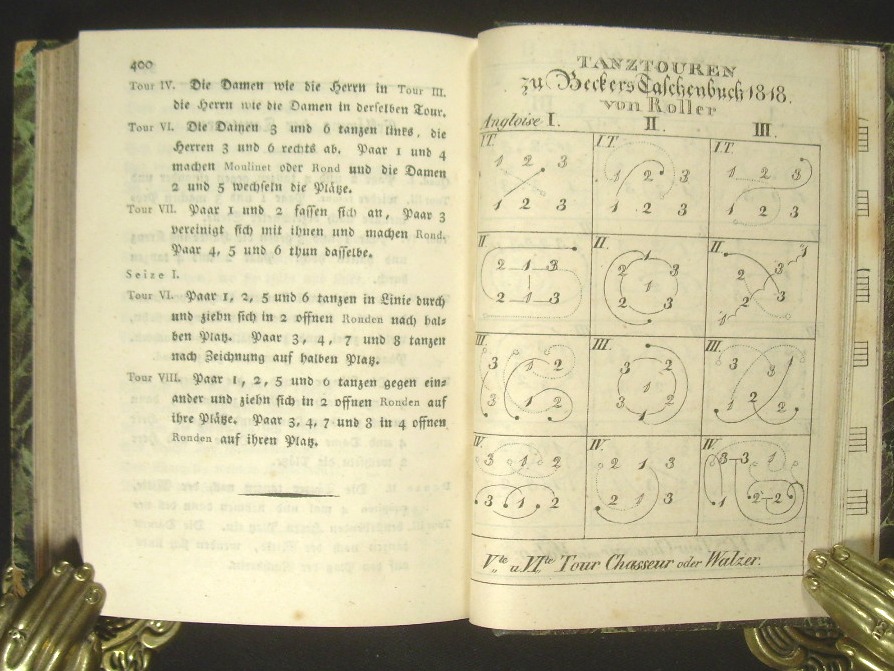 400
Tour IV. Die Damen wie die Herrn in Tour III.
die Herrn wie die Damen in derselben Tour.
Tour VI. Die Damen 3 und 6 tanzen links, die
Herren 3 und 6 rechts ab. Paar 1 und 4
machen Moulinet oder Rond und die Damen
2 und 5 wechseln die Plätze.
Tour VII. Paar 1 und 2 fassen sich an, Paar 3
vereinigt sich mit ihnen und machen Rond.
Paar 4, 5 und 6 thun dasselbe.
Seize I.
Tour VI. Paar 1, 2, 5 und 6 tanzen in Linie durch
und ziehn sich in 2 offnen Ronden nach hal-
ben Platz. Paar 3, 4, 7 und 8 tanzen
nach Zeichnung auf halben Platz.
Tour VIII. Paar 1, 2, 5 und 6 tanzen gegen ein-
ander und ziehn sich in 2 offnen Ronden auf
ihre Plätze. Paar 3, 4, 7 und 8 in 4 offnen
Ronden auf ihren Platz.
TANZTOUREN
zu Beckers Taschenbuch 1818.
von Roller
Angloise I. II. III.
I T. I T. I T.
1 2 3 1 2 3 1 2 3
1 2 3 1 2 3 1 2 3
II. II. II.
2 1 3 1 3 1 2 3
2 1 3 2 4 1 2 3
III. III. III.
3 1 2 1 3 3 3 1
3 1 2 2 1 1 2
IV. IV. IV.
3 1 2 2 1 3 3 3 1
3 1 2 2 1 3 1 2 2
Vte u. VIte Tour Chasseur oder Walzer.